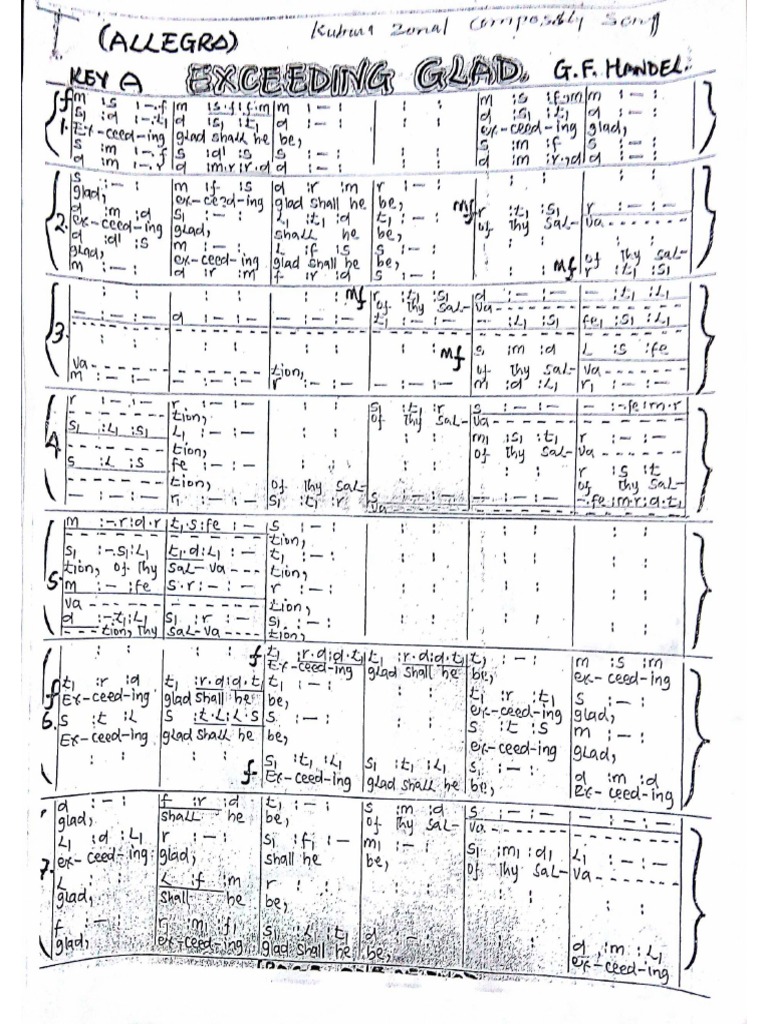 Kuhuna Zonal Composibly Song
(ALLEGRO)
KEY A EXCEEDING GLAD. G.F. HANDEL.
f m :s :-.f | m :s.f:f.m | m :-: | : : | m :s :f.m | m :-:
s₁ :d :-.t₁ | d :s₁ :t₁ | d :-: | : : | d :s₁ :t₁ | d :-:
1. Ex-ceed-ing glad shall he be, ex-ceed-ing glad,
s :m :-.f | s :d' :s | s :-: | : : | s :m :f | s :-:
d :m :-.r | d :m.r:r.d | d :-: | : : | d :m :r.d | d :-:
s :-: | m :f :s | d :r :m | r :-: | : : | r :-:-
glad, ex-ceed-ing glad shall he be,
d :m :d | s₁ :-: | L₁ :t₁ :d | t₁ :-: | mf r :t₁ :s₁
2. ex-ceed-ing glad, shall he be, of Thy Sal- va
d :d' :s | m :-: | L :f :s | s :-:
glad, ex-ceed-ing glad shall he be, of Thy Sal-
m :-: | d :r :m | f :r :d | s :-: | : : | mf r :t₁ :s₁
: : | : : | : : | mf r :t₁ :s₁ | d :-:- | - :t₁ :L₁
of Thy Sal- va
- :-:- | d :-:- | - :-:- | t₁ :-:- | - :L₁ :s₁ | fe₁ :s₁ :L₁
3.
: : | : : | : : | : : | mf s :m :d | L :s :fe
va tion, of Thy Sal- va
m :-:- | - :-:- | r :-:- | - :-:- | m :d :L₁ | r₁ :-:-
r :-:- | r :-:- | : : | s₁ :t₁ :r | s :-:- | - :-.fe:m.r
tion, of Thy Sal- va
s₁ :L₁ :s₁ | L₁ :-:- | : : | : : | m₁ :s₁ :t₁ | r :-:-
4. tion, of Thy Sal- va
s :L :s | fe :-:- | : : | : : | : : | r :s :t
tion, of Thy Sal- of Thy Sal-
- :-:- | r₁ :-:- | s₁ :t₁ :r | s :-:- | - :-:- | -.fe:m.r:d.t₁
va
m :-.r:d.r | t₁.s:fe :- | s :-:
tion,
s₁ :-.s₁:L₁ | t₁.d:L₁ :- | t₁ :-:
5. tion, of Thy Sal-va tion,
m :- :fe | s.r:- :- | r :-:
va tion,
d :-.t₁:L₁ | s₁ :r :- | s₁ :-:
tion, Thy Sal-va tion,
: : | : : | f t₁ :r.d:d.t₁ | t₁ :r.d:d.t₁ | t₁ :-: | m :s :m
Ex-ceed-ing glad shall he be, ex-ceed-ing
f t₁ :r :d | t₁ :r.d:d.t₁ | t₁ :-: | : : | t₁ :r :t₁ | s :-:
6. Ex-ceed-ing glad shall he be, ex-ceed-ing glad,
s :t :L | s :t.L:L.s | s :-: | : : | s :t :s | m :-:
Ex-ceed-ing glad shall he be, ex-ceed-ing glad,
: : | : : | f s₁ :t₁ :L₁ | s₁ :t₁ :L₁ | s₁ :-: | d :m :d
Ex-ceed-ing glad shall he be, ex-ceed-ing
d :-: | f :r :d | t₁ :-: | s :m :d | s :-:- | - :-:-
glad, shall he be, of Thy Sal- va
L₁ :d :L₁ | r :-: | s₁ :f₁ :- | m₁ :-: | s₁ :m₁ :d₁ | L₁ :-:-
7. ex-ceed-ing glad, shall he be, of Thy Sal- va
L | L :f :m | r :
glad, shall he be,
f :- | r₁ :m₁ :f₁ | s₁ :L :t₁ | d :-: | : : | d :m :L₁
glad, ex-ceed-ing glad shall he be, ex-ceed-ing